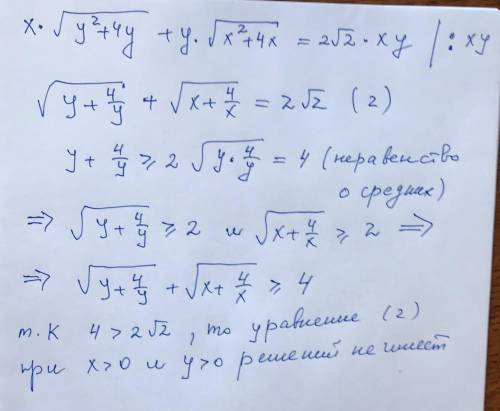 x·√(y²+4y) + y·√(x²+4x) = 2√2·xy | : xy
√(y+4/y) + √(x+4/x) = 2√2 (2)
y+4/y ≥ 2√(y·4/y) = 4 (неравенство
о средних)
⇒ √(y+4/y) ≥ 2 и √(x+4/x) ≥ 2 ⇒
⇒ √(y+4/y) + √(x+4/x) ≥ 4
т.к 4 > 2√2, то уравнение (2)
при x>0 и y>0 решений не имеет